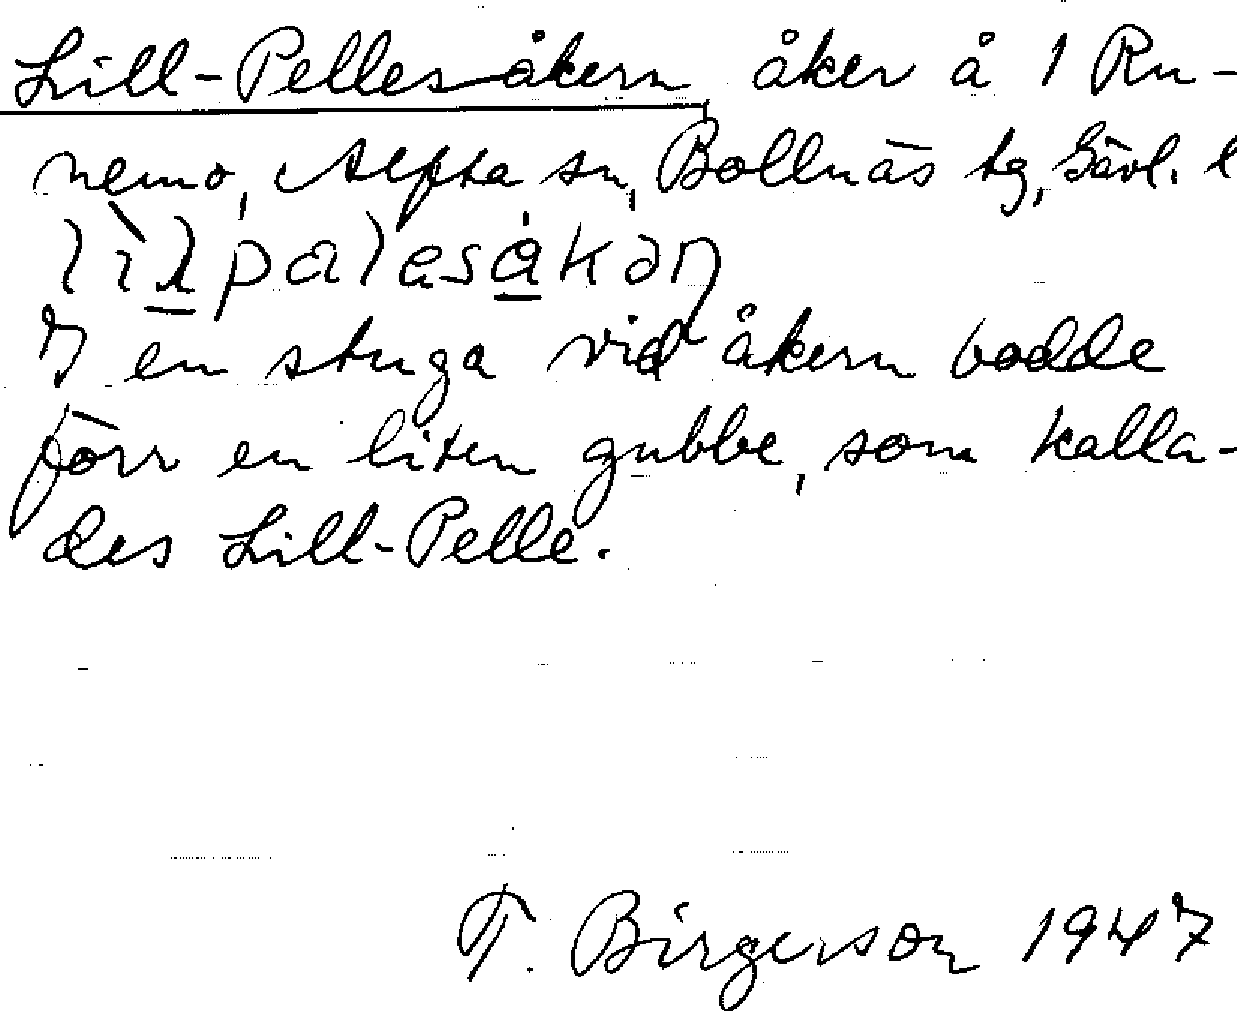 Lill-Pellesåkern, åker å 1 Ru-
nemo, Alfta sn, Bollnäs tg, Gävl. l
I en stuga vid åkern bodde
förr en liten gubbe, som kalla-
des Lill-Pelle.
T. Birgerson 1947